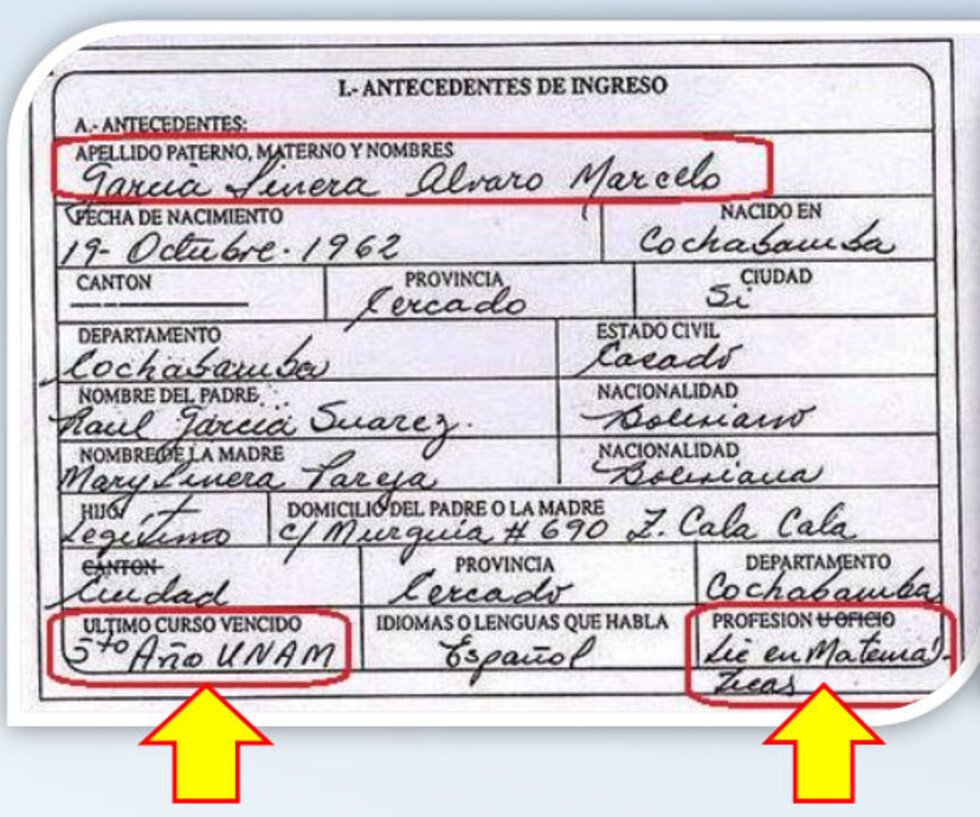 I.- ANTECEDENTES DE INGRESO
A.- ANTECEDENTES:
APELLIDO PATERNO, MATERNO Y NOMBRES
García Linera Alvaro Marcelo
FECHA DE NACIMIENTO NACIDO EN
19- Octubre. 1962 Cochabamba
CANTON PROVINCIA CIUDAD
Cercado Si
DEPARTAMENTO ESTADO CIVIL
Cochabamba Casado
NOMBRE DEL PADRE NACIONALIDAD
Raul García Suarez. Boliviano
NOMBRE DE LA MADRE NACIONALIDAD
Mary Linera Pareja Boliviana
HIJO DOMICILIO DEL PADRE O LA MADRE
Legítimo c/ Murguia # 690 Z. Cala Cala
CANTON PROVINCIA DEPARTAMENTO
Ciudad Cercado Cochabamba
ULTIMO CURSO VENCIDO IDIOMAS O LENGUAS QUE HABLA PROFESION U OFICIO
5to Año UNAM Español Lic en Matemá-
ticas